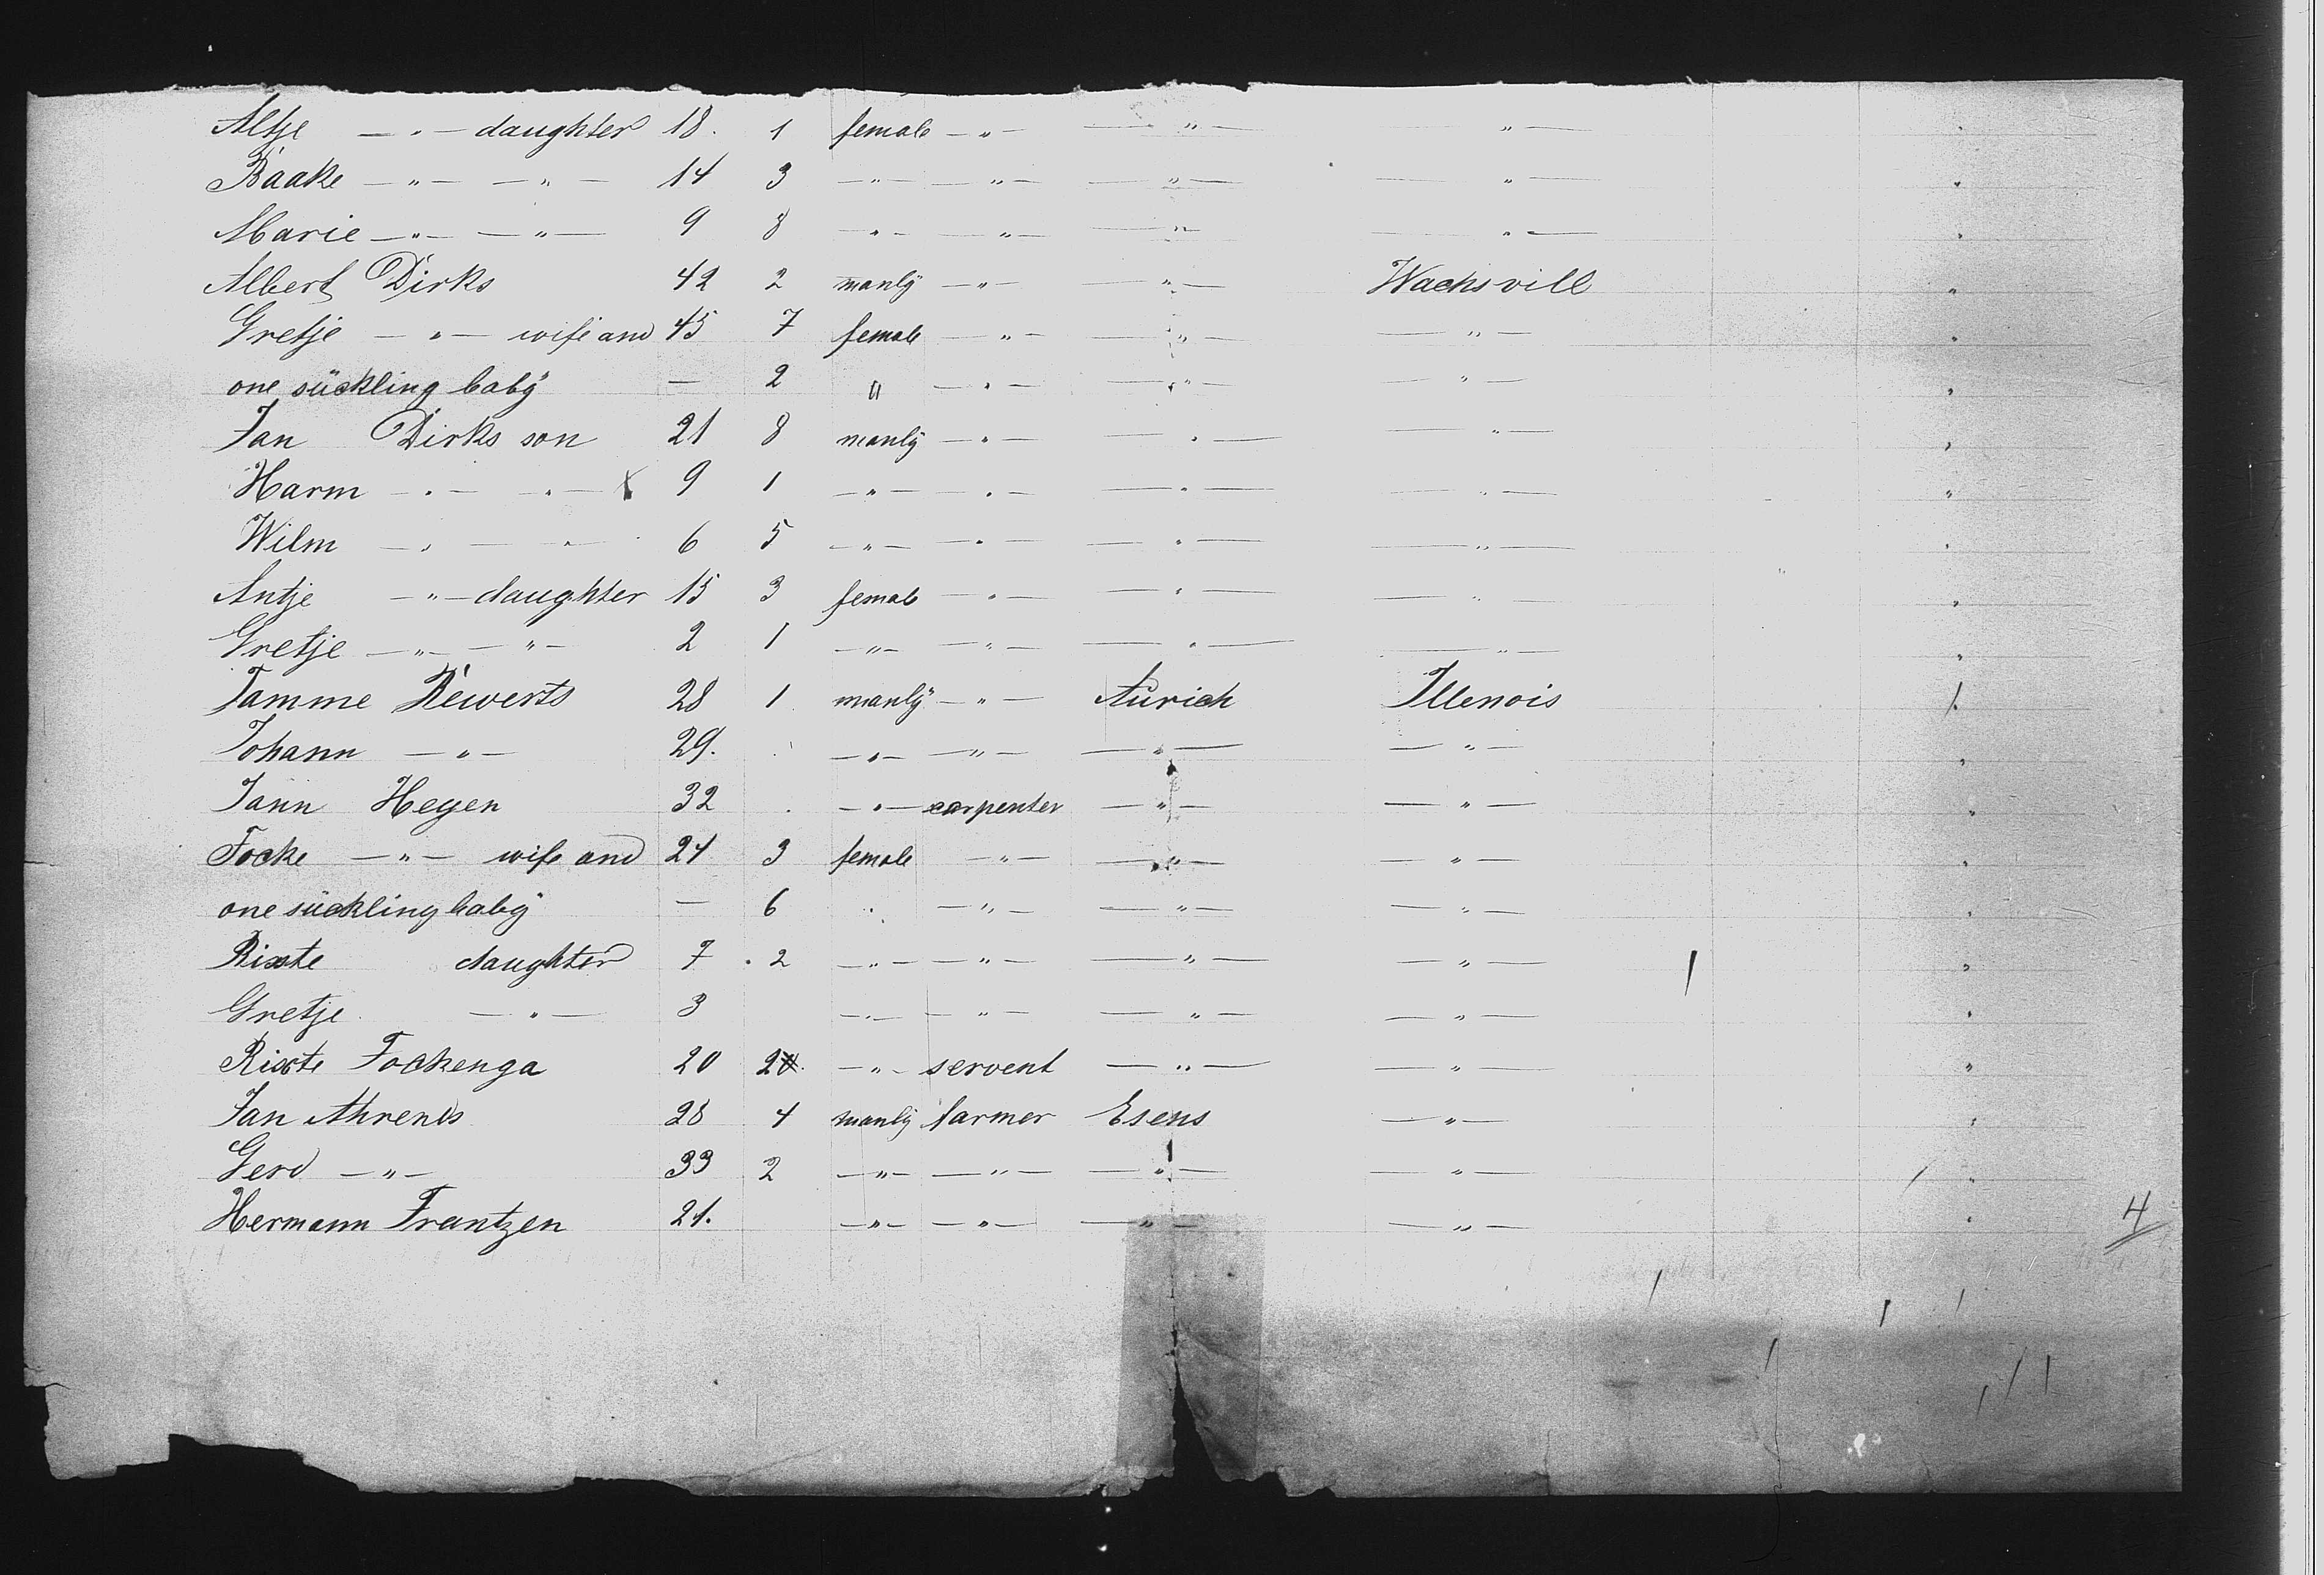 Altje — " — daughter 18. 1 female — " — — " — — " — "
Baake — " — — " — 14 3 — " — — " — — " — — " — "
Marie — " — — " — 9 8 — " — — " — — " — — " — "
Albert Dirks 42 2 manlÿ — " — — " — Wachsvill "
Gretje — " — wife and 45 7 female — " — — " — — " — "
one sückling babÿ — 2 " — " — — " — — " — "
Jan Dirks son 21 8 manlÿ — " — — " — — " — "
Harm — " — — " — 9 1 — " — — " — — " — — " — "
Wilm — " — — " — 6 5 — " — — " — — " — — " — "
Antje — " — daughter 15 3 female — " — — " — — " — "
Gretje — " — — " — 2 1 — " — — " — — " — — " — "
Tamme Rewerts 28 1 manlÿ — " — Aurich Illenois /.
Johann — " — 29. — " — — " — — " — — " — "
Jann Heyen 32 — " — carpenter — " — — " — "
Focke — " — wife and 24 3 female — " — — " — — " — "
one sückling babÿ — 6 " — " — — " — — " — "
Rixte daughter 7 2 — " — — " — — " — — " — "
Gretje — " — 3 — " — — " — — " — — " — "
Rixte Fockenga 20 2 — " — servent — " — — " — "
Jan Ahrends 28 4 manlÿ farmer Esens — " — "
Gerd — " — 33 2 — " — — " — — " — — " — "
Hermann Frantzen 21. — " — — " — — " — — " — "
4